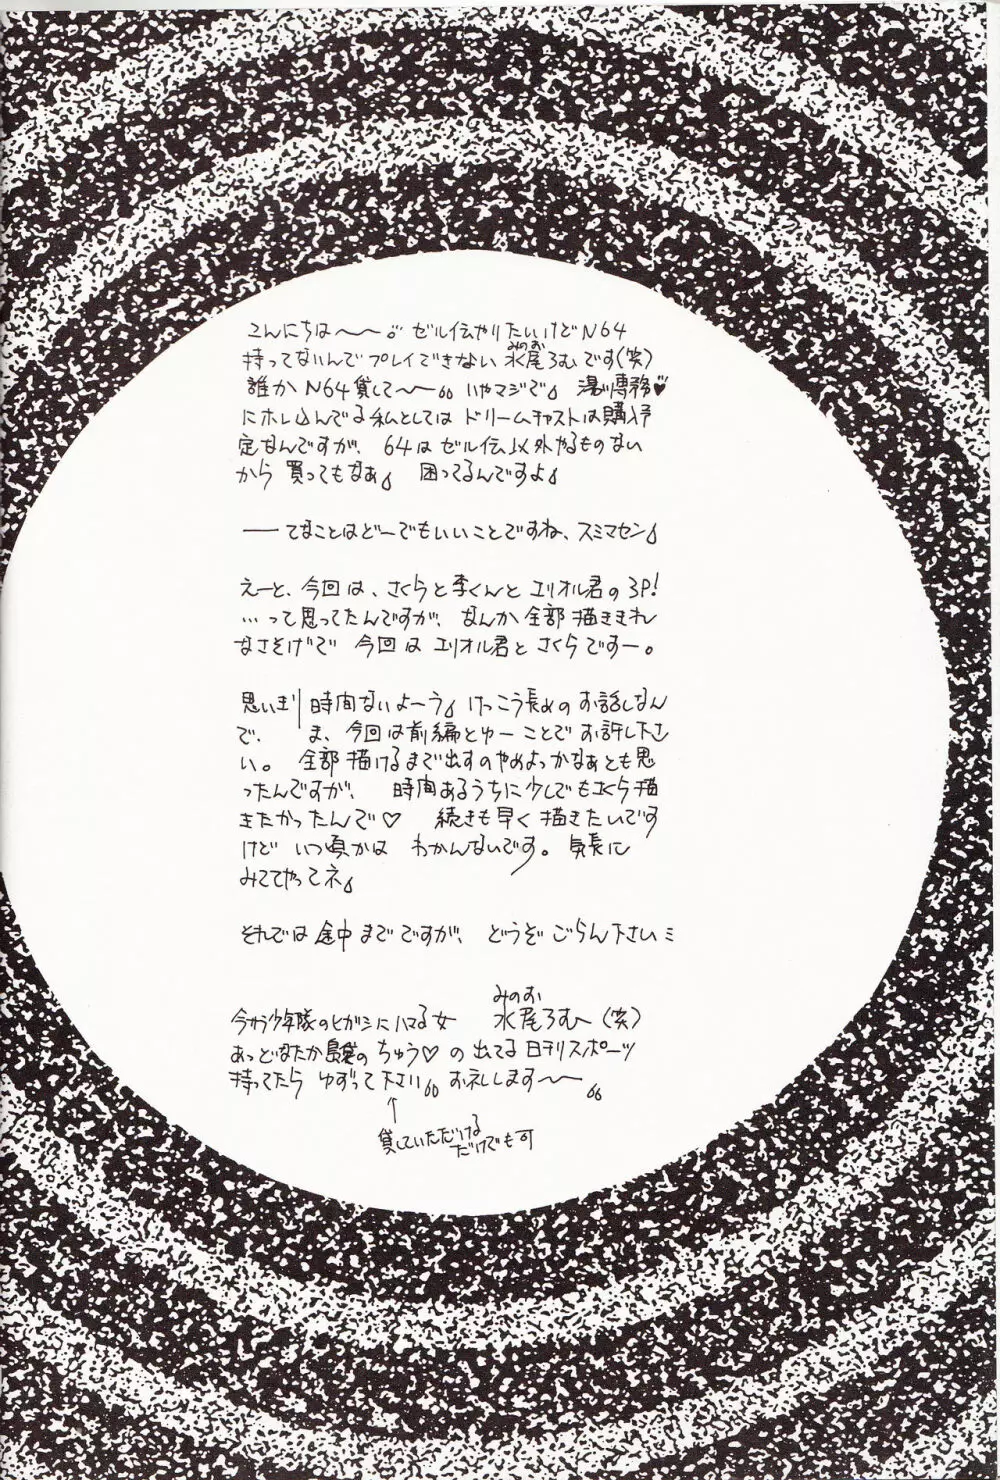 こんにちは〜〜 ゼル伝やりたいけどN64
持ってないんでプレイできない 水尾ろむです(笑)
みのお
誰かN64貸して〜〜 いやマジで 湯川専務♡
にホレ込んでる私としては ドリームキャストは購入予
定なんですが、64はゼル伝以外やるものない
から 買ってもなぁ 困ってるんですよ
──てなことはどーでもいいことですね、スミマセン
えーと、今回は、さくらと李くんと エリオル君の3P!
…って思ってたんですが、なんか全部描ききれ
なさそげで 今回は エリオル君と さくらですー。
思いきり時間ないよーう けっこう長めのお話しなん
で、 ま、今回は前編とゆーことでお許し下さ
い。 全部描けるまで出すのやめよっかなぁとも思
ったんですが、 時間あるうちに少しでもさくら描
きたかったんで♡ 続きも早く描きたいです
けど いつ頃かは わかんないです。 気長に
みててやってネ
それでは 途中までですが、 どうぞごらん下さい
みのお
今から少年隊のヒガシにハマる女 水尾ろむ〜(笑)
あっどなたか のちゅう♡の出てる日刊スポーツ
持ってたら ゆずって下さい お礼します〜〜
↑
貸していただける
だけでも可